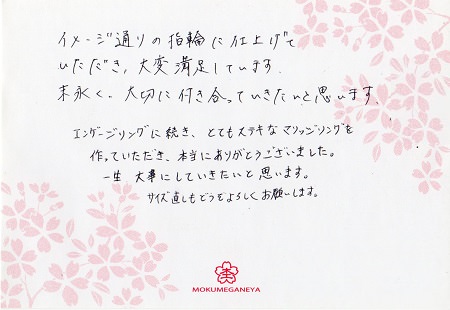 イメージ通りの指輪に仕上げて
いただき、大変満足しています。
末永く、大切に付き合っていきたいと思います。
エンゲージリングに続き、とてもステキなマリッジリングを
作っていただき、本当にありがとうございました。
一生 大事にしていきたいと思います。
サイズ直しもどうぞよろしくお願いします。
MOKUMEGANEYA